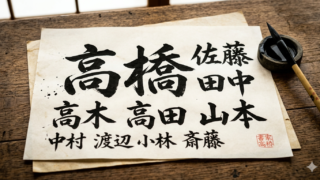 高橋 佐藤
田中
高木 高田 山本
中村 渡辺 小林 斎藤